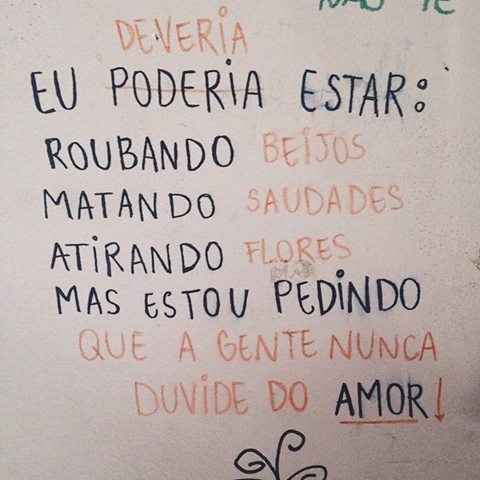 NÃO TE
DEVERIA
EU PODERIA ESTAR:
ROUBANDO BEIJOS
MATANDO SAUDADES
ATIRANDO FLORES
MAS ESTOU PEDINDO
QUE A GENTE NUNCA
DUVIDE DO AMOR!